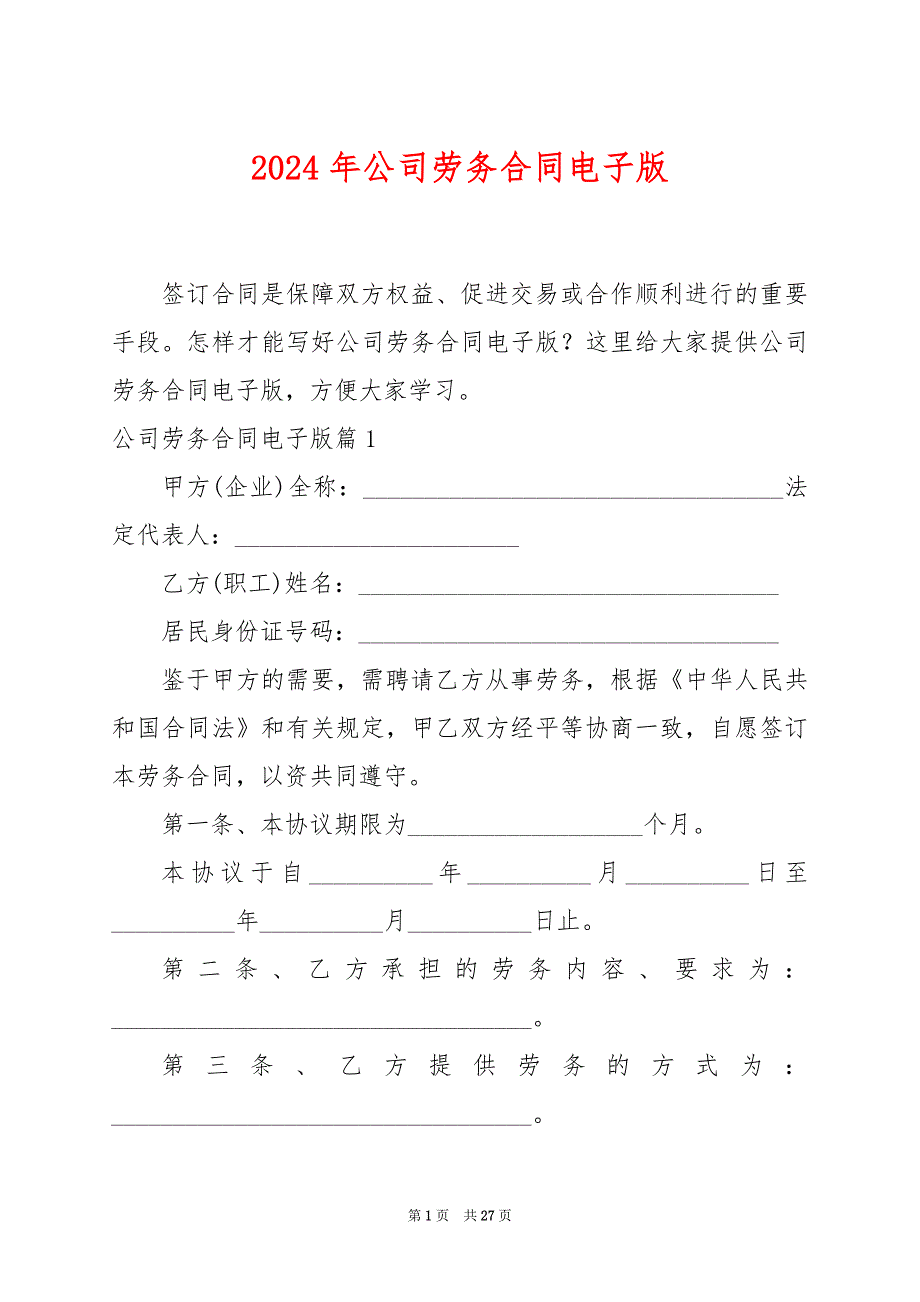 2024年公司劳务合同电子版
签订合同是保障双方权益、促进交易或合作顺利进行的重要
手段。怎样才能写好公司劳务合同电子版？这里给大家提供公司
劳务合同电子版，方便大家学习。
公司劳务合同电子版篇1
甲方(企业)全称：__________________________________法
定代表人：_______________________
乙方(职工)姓名：__________________________________
居民身份证号码：__________________________________
鉴于甲方的需要，需聘请乙方从事劳务，根据《中华人民共
和国合同法》和有关规定，甲乙双方经平等协商一致，自愿签订
本劳务合同，以资共同遵守。
第一条、本协议期限为___________________个月。
本协议于自__________年__________月__________日至
__________年__________月__________日止。
第二条、乙方承担的劳务内容、要求为：
__________________________________。
第三条、乙方提供劳务的方式为：
__________________________________。
第1页 共27页